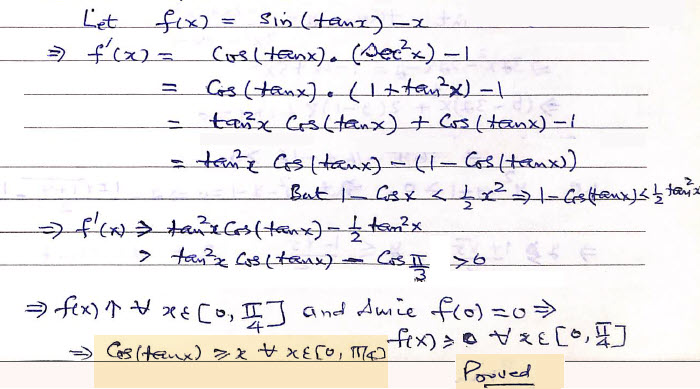 Let f(x) = sin(tanx) - x
⇒ f'(x) = Cos(tanx). (Sec²x) - 1
= Cos(tanx). (1 + tan²x) - 1
= tan²x Cos(tanx) + Cos(tanx) - 1
= tan²x Cos(tanx) - (1 - Cos(tanx))
But 1 - Cosx < 1/2 x² ⇒ 1 - Cos(tanx) ≤ 1/2 tan²x
⇒ f'(x) ≥ tan²x Cos(tanx) - 1/2 tan²x
> tan²x Cos(tanx) - Cos π/3 > 0
⇒ f(x) ↑ ∀ x ε [0, π/4] and since f(0) = 0 ⇒
f(x) ≥ 0 ∀ x ε [0, π/4]
⇒ Cos(tanx) ≥ x ∀ x ε [0, π/4]
Proved